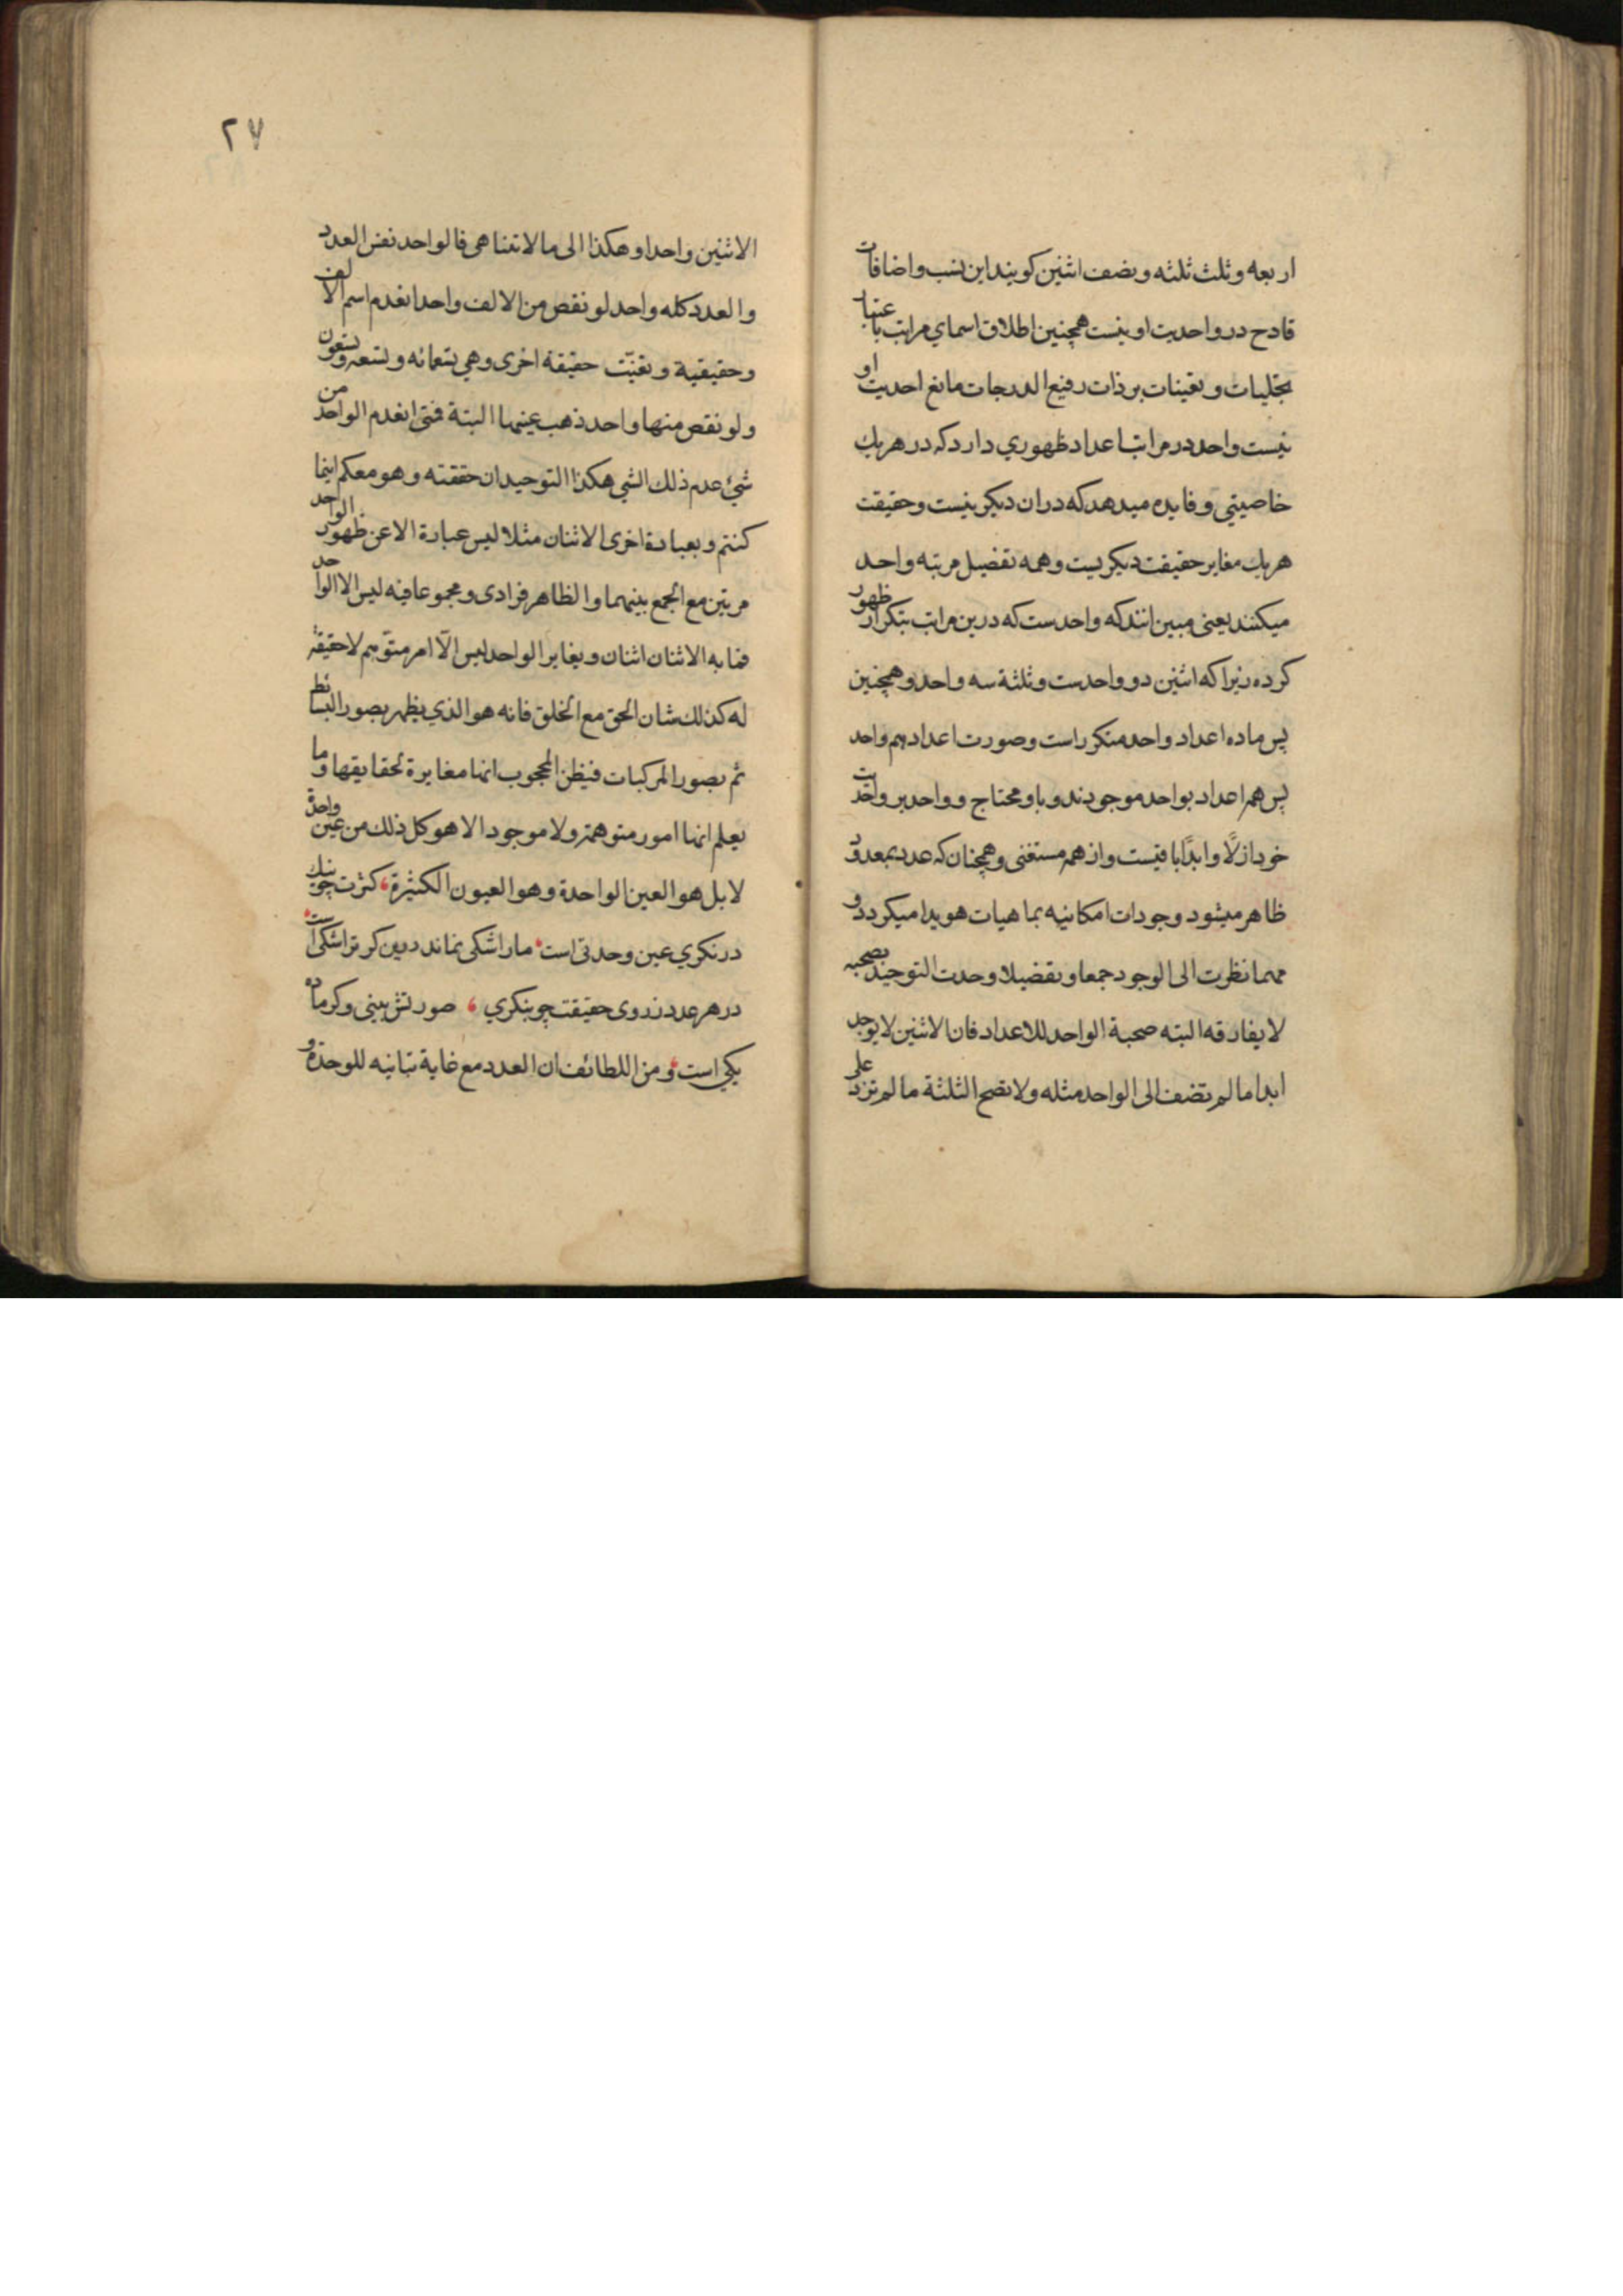 اربعه و ثلث ثلثه و نصف اثنین کویند این نسب و اضافات
قادح در واحدیت او نیست همچنین اطلاق اسمای مراتب باعتبار
تجلیات و تعینات بر ذات رفیع الدرجات مانع احدیت او
نیست واحد در مراتب اعداد ظهوري دارد که در هر یك
خاصیتي و فایده میدهد که در ان دیکر نیست و حقیقت
هر یك مغایر حقیقت دیکریست و همه تفضیل مرتبه واحد
میکنند یعنی مبین انند که واحدست که درین مراتب بتکرار ظهور
کرده زیرا که اثنین دو واحدست و ثلثة سه واحد و همچنین
پس ماده اعداد واحد متکرر است و صورت اعداد هم واحد
پس همه اعداد بواحد موجودند و باو محتاج و واحد بر واحدیت
خود ازلًا و ابدًا باقیست و از همه مستغنی و همچنان که عدد بمعدود
ظاهر میشود وجودات امکانیه بماهیات هویدا میکردد و
مهما نظرت الی الوجود جمعا و تفضیلا وحدت التوحید بصحبه
لا یفارقه البته صحبة الواحد للاعداد فان الاثنین لا یوجد
ابدا ما لم تضف الی الواحد مثله ولا تصح الثلثة ما لم تزد علی
۲۷
الاثنین واحدا و هکذا الی ما لا تتناهی فالواحد نفس العدد
والعدد کله واحد لو نقص من الالف واحد انعدم اسم الالف
وحقیقیة و تقیّت حقیقة اخری وهي تسعمائه و تسعه و تسعون
ولو نقص منها واحد ذهب عینها البتة فمتی انعدم الواحد من
شيء عدم ذلك الشي هکذا التوحید ان حققته و هو معکم اینما
کنتم و بعبارة اخری الاثنان مثلا لیس عبارة الا عن ظهور الواحد
مرتین مع الجمع بینهما والظاهر فرادی و مجموعا فیه لیس الا الواحد
فما به الاثنان اثنان و یغایر الواحد لیس الّا امر متوّهم لا حقیقة
له کذلك شان الحق مع الخلق فانه هو الذي یظهر بصور البسائط
ثم بصور المرکبات فیظن المحجوب انها مغایرة لحقایقها وما
یعلم انها امور متوهمة ولا موجود الا هو کل ذلك من عین واحدة
لا بل هو العین الواحدة و هو العیون الکثیرة ، کثرت چو نیك
در نکري عین وحدتی است ، ما را شکی نماند درین کر ترا شکی است ،
در هر عدد ز روی حقیقت چو بنکري ، صورتش ببینی و کر ماده
یکي است ، و من اللطائف ان العدد مع غایة تباینه للوحدة و